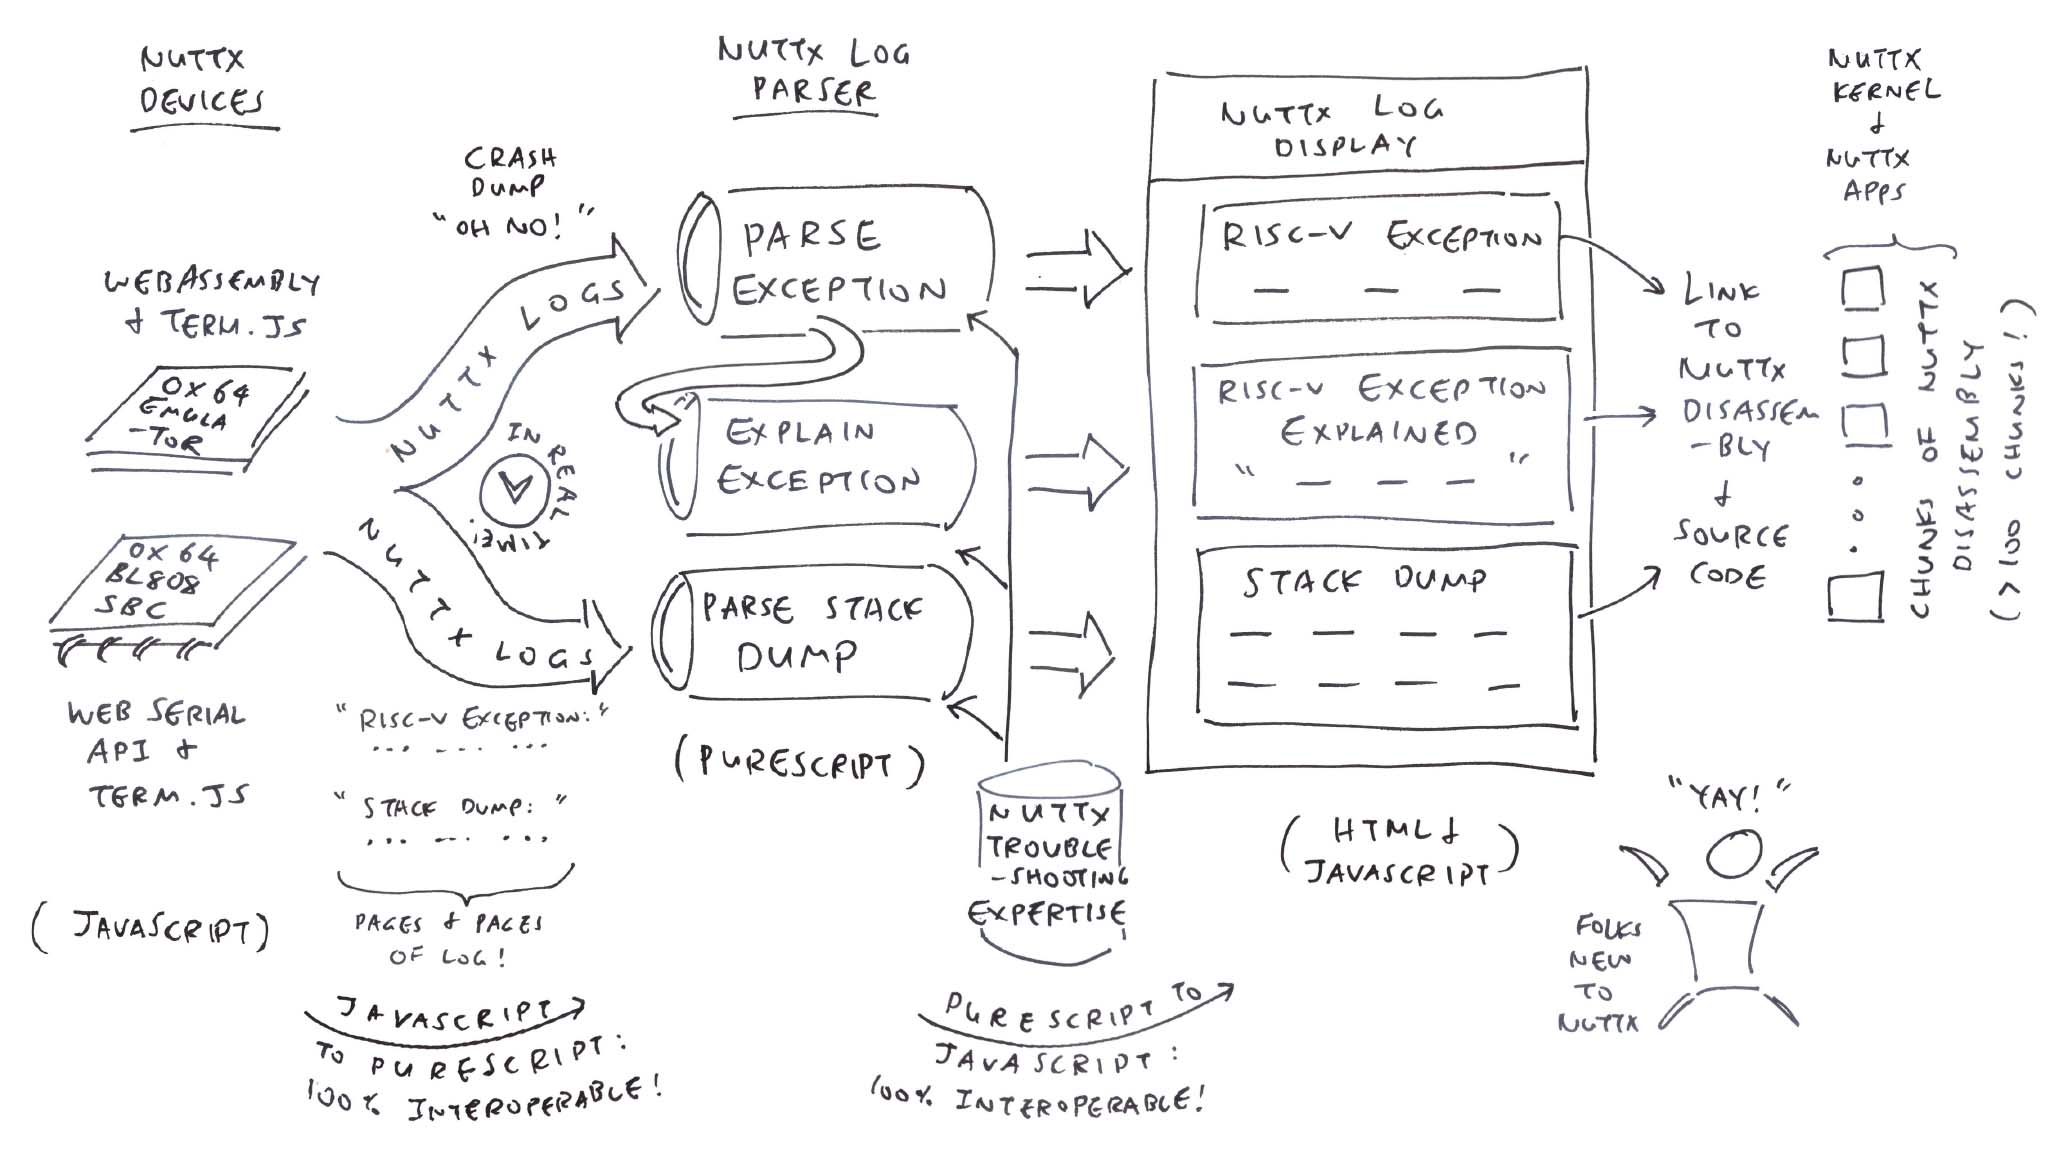 NUTTX
DEVICES
WEBASSEMBLY
& TERM.JS
OX64
EMULA
-TOR
OX64
BL808
SBC
WEB SERIAL
API &
TERM.JS
(JAVASCRIPT)
CRASH
DUMP
"OH NO!"
NUTTX LOGS
IN REAL TIME!
NUTTX LOGS
"RISC-V EXCEPTION:"
... --- ...
"STACK DUMP:"
... --- ...
PAGES & PAGES
OF LOG!
JAVASCRIPT
TO PURESCRIPT:
100% INTEROPERABLE!
NUTTX LOG
PARSER
PARSE
EXCEPTION
EXPLAIN
EXCEPTION
PARSE STACK
DUMP
(PURESCRIPT)
NUTTX
TROUBLE
-SHOOTING
EXPERTISE
PURESCRIPT TO
JAVASCRIPT:
100% INTEROPERABLE!
NUTTX LOG
DISPLAY
RISC-V EXCEPTION
— — —
RISC-V EXCEPTION
EXPLAINED
" — — — "
STACK DUMP
— — — —
— — — —
(HTML &
JAVASCRIPT)
LINK
TO
NUTTX
DISASSEM
-BLY
&
SOURCE
CODE
NUTTX
KERNEL
&
NUTTX
APPS
CHUNKS OF NUTTX
DISASSEMBLY
(>100 CHUNKS!)
"YAY!"
FOLKS
NEW
TO
NUTTX